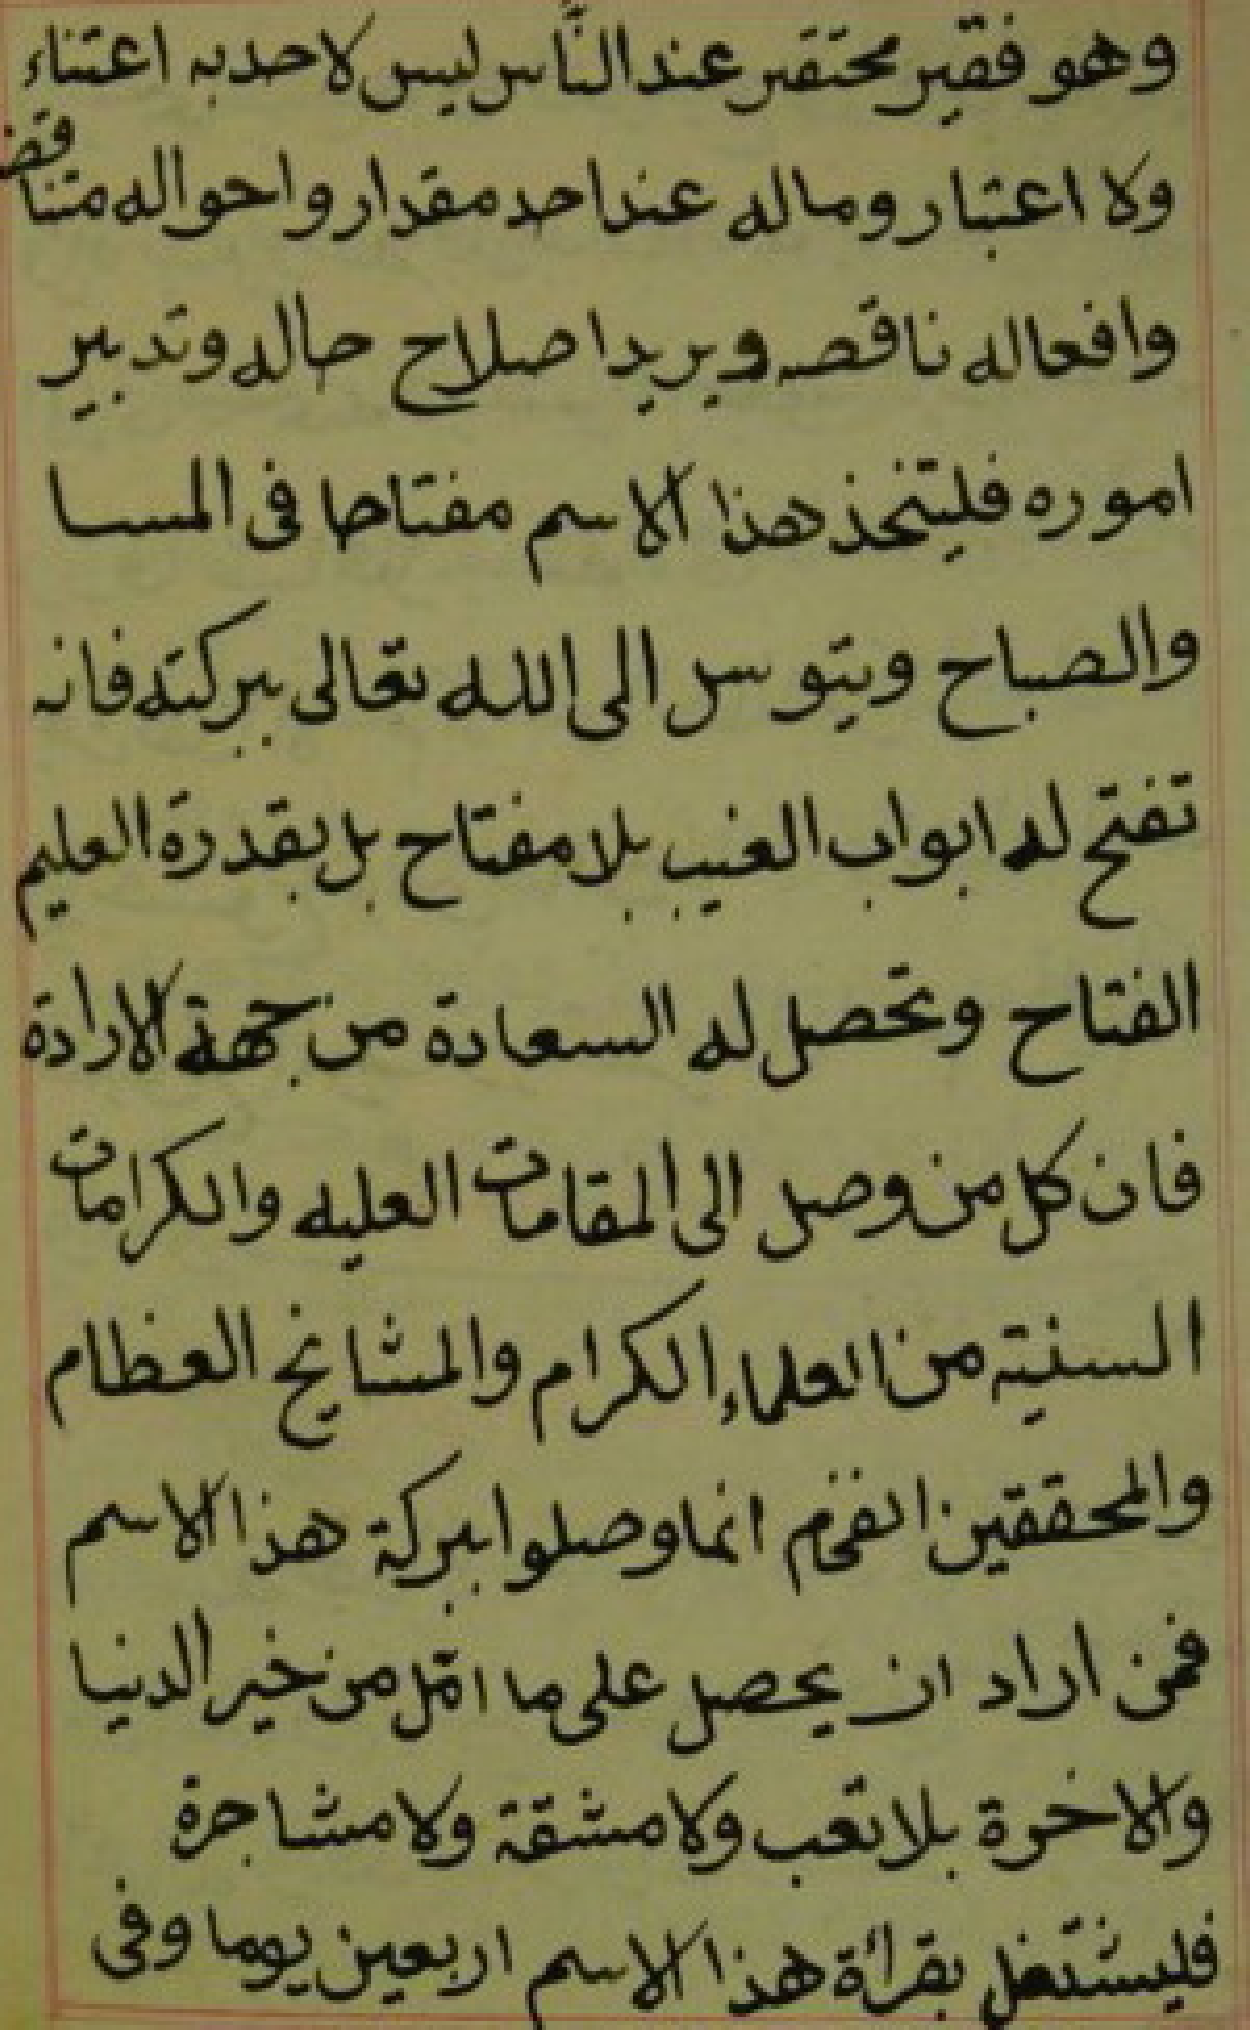 وهو فقير محتقر عند النّاس ليس لاحد به اعتناء
ولا اعتبار وماله عند احد مقدار واحواله متناقضه
وافعاله ناقصه ويريد اصلاح حاله وتدبير
اموره فليتخذ هذا الاسم مفتاحا فى المسا
والصباح ويتوسل الى الله تعالى ببركته فانه
تفتح له ابواب الغيب بلا مفتاح بل بقدرة العليم
الفتاح وتحصل له السعادة من جهة الارادة
فان كل من وصل الى المقامات العليه والكرامات
السنية من العلماء الكرام والمشايخ العظام
والمحققين الفخم انما وصلوا ببركة هذا الاسم
فمن اراد ان يحصل على ما امّل من خير الدنيا
والاخرة بلا تعب ولا مشقة ولا مشاجرة
فليشتغل بقرأة هذا الاسم اربعين يوما وفى